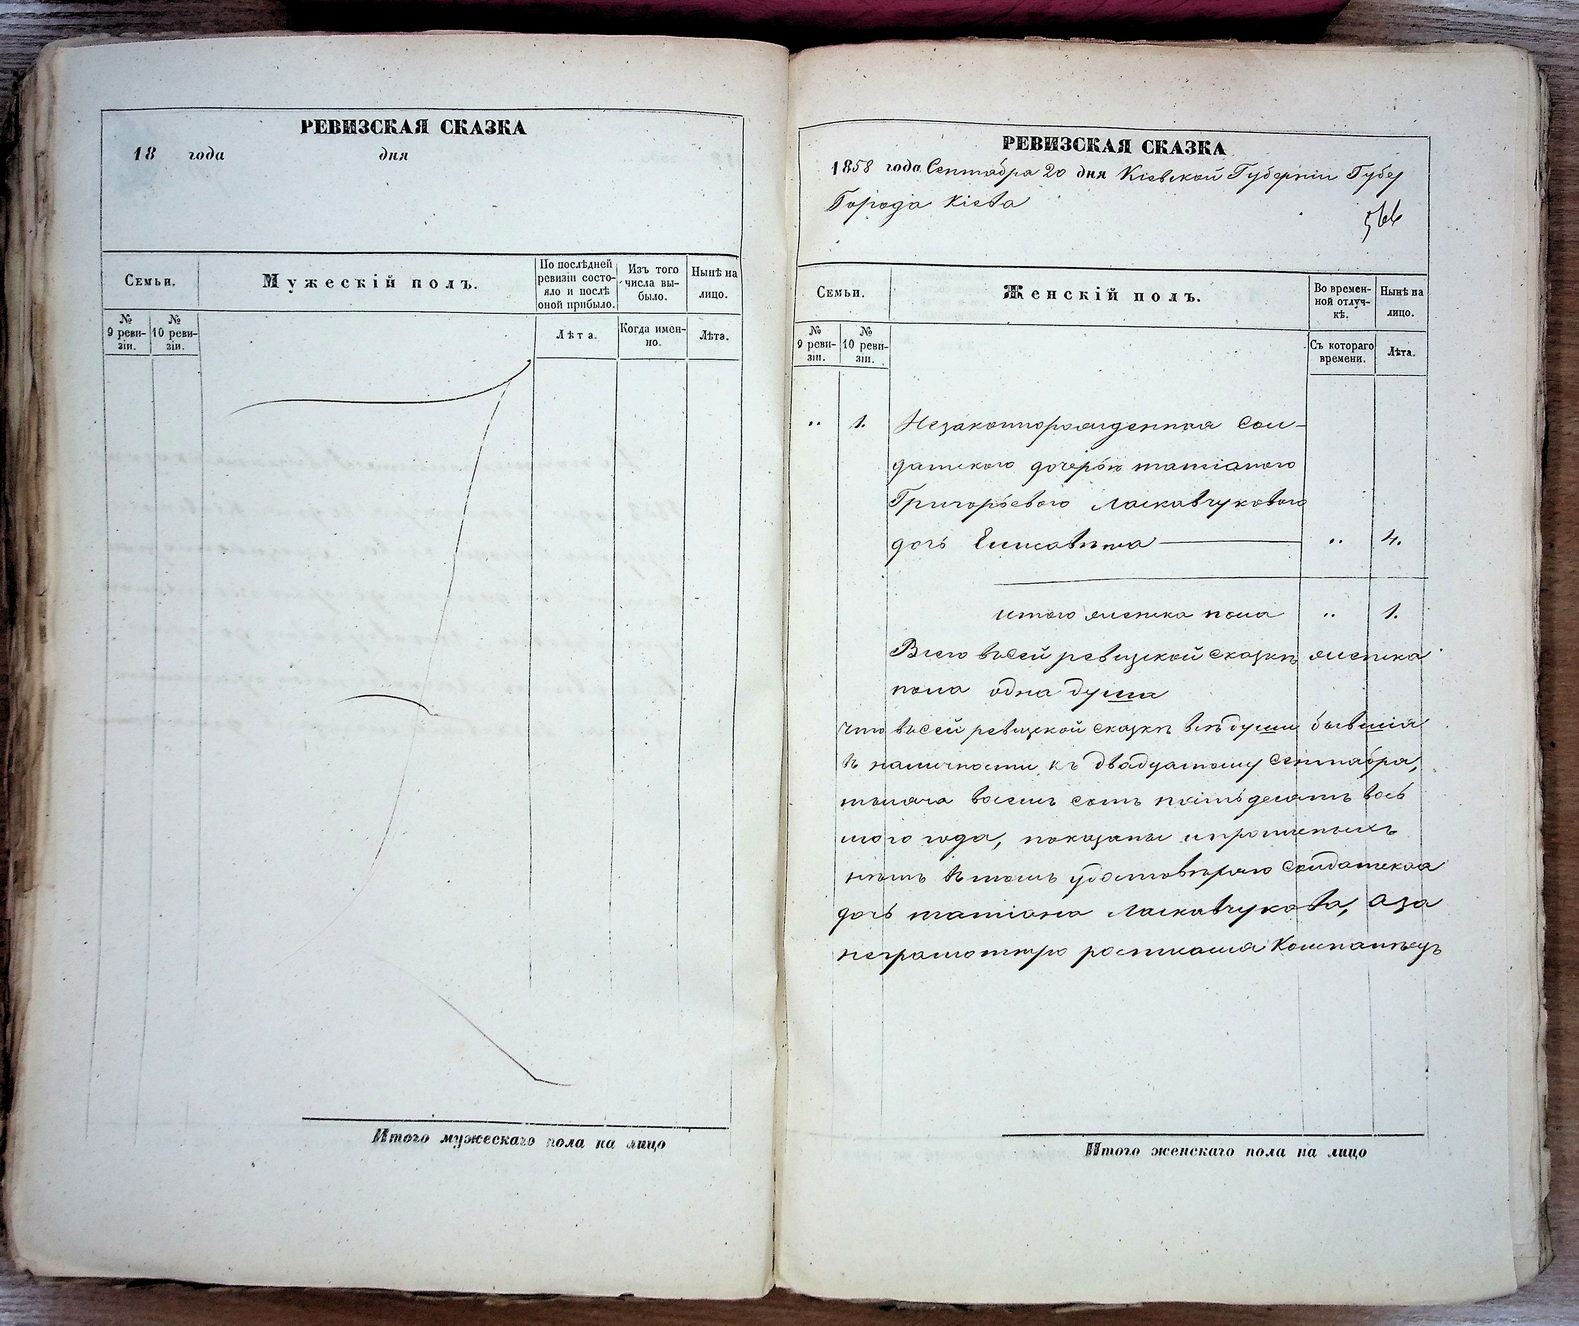 РЕВИЗСКАЯ СКАЗКА
18 года дня
Семьи.
Мужескій полъ.
По послѣдней ревизіи состояло и послѣ оной прибыло.
Изъ того числа выбыло.
Нынѣ на лицо.
№ 9 ревизіи.
№ 10 ревизіи.
Лѣта.
Когда именно.
Лѣта.
Итого мужескаго пола на лицо
РЕВИЗСКАЯ СКАЗКА
1858 года Сентября 20 дня Кіевской Губерніи Губер
Города Кіева
566
Семьи.
Женскій полъ.
Во временной отлучкѣ.
Нынѣ на лицо.
№ 9 ревизіи.
№ 10 ревизіи.
Съ котораго времени.
Лѣта.
" 1. Незаконнорожденная Сол-
датскою дочерью татіаною
Григорьевою Ласкавчуковою
дочь Елисавѣта " 4.
итого женска пола " 1.
Всего въсей ревизской сказкѣ женска
пола одна душа
что въсей ревизской сказкѣ всѣ души бывшія
въ наличности къ двадцатому Сентября,
тысяча восемь сотъ пятьдесятъ вось
маго года, показаны и прописныхъ
нѣтъ въ томъ удостовѣряю Солдатская
дочь татіана Ласкавчукова, а за
неграмотную росписался Компанѣецъ
Итого женскаго пола на лицо